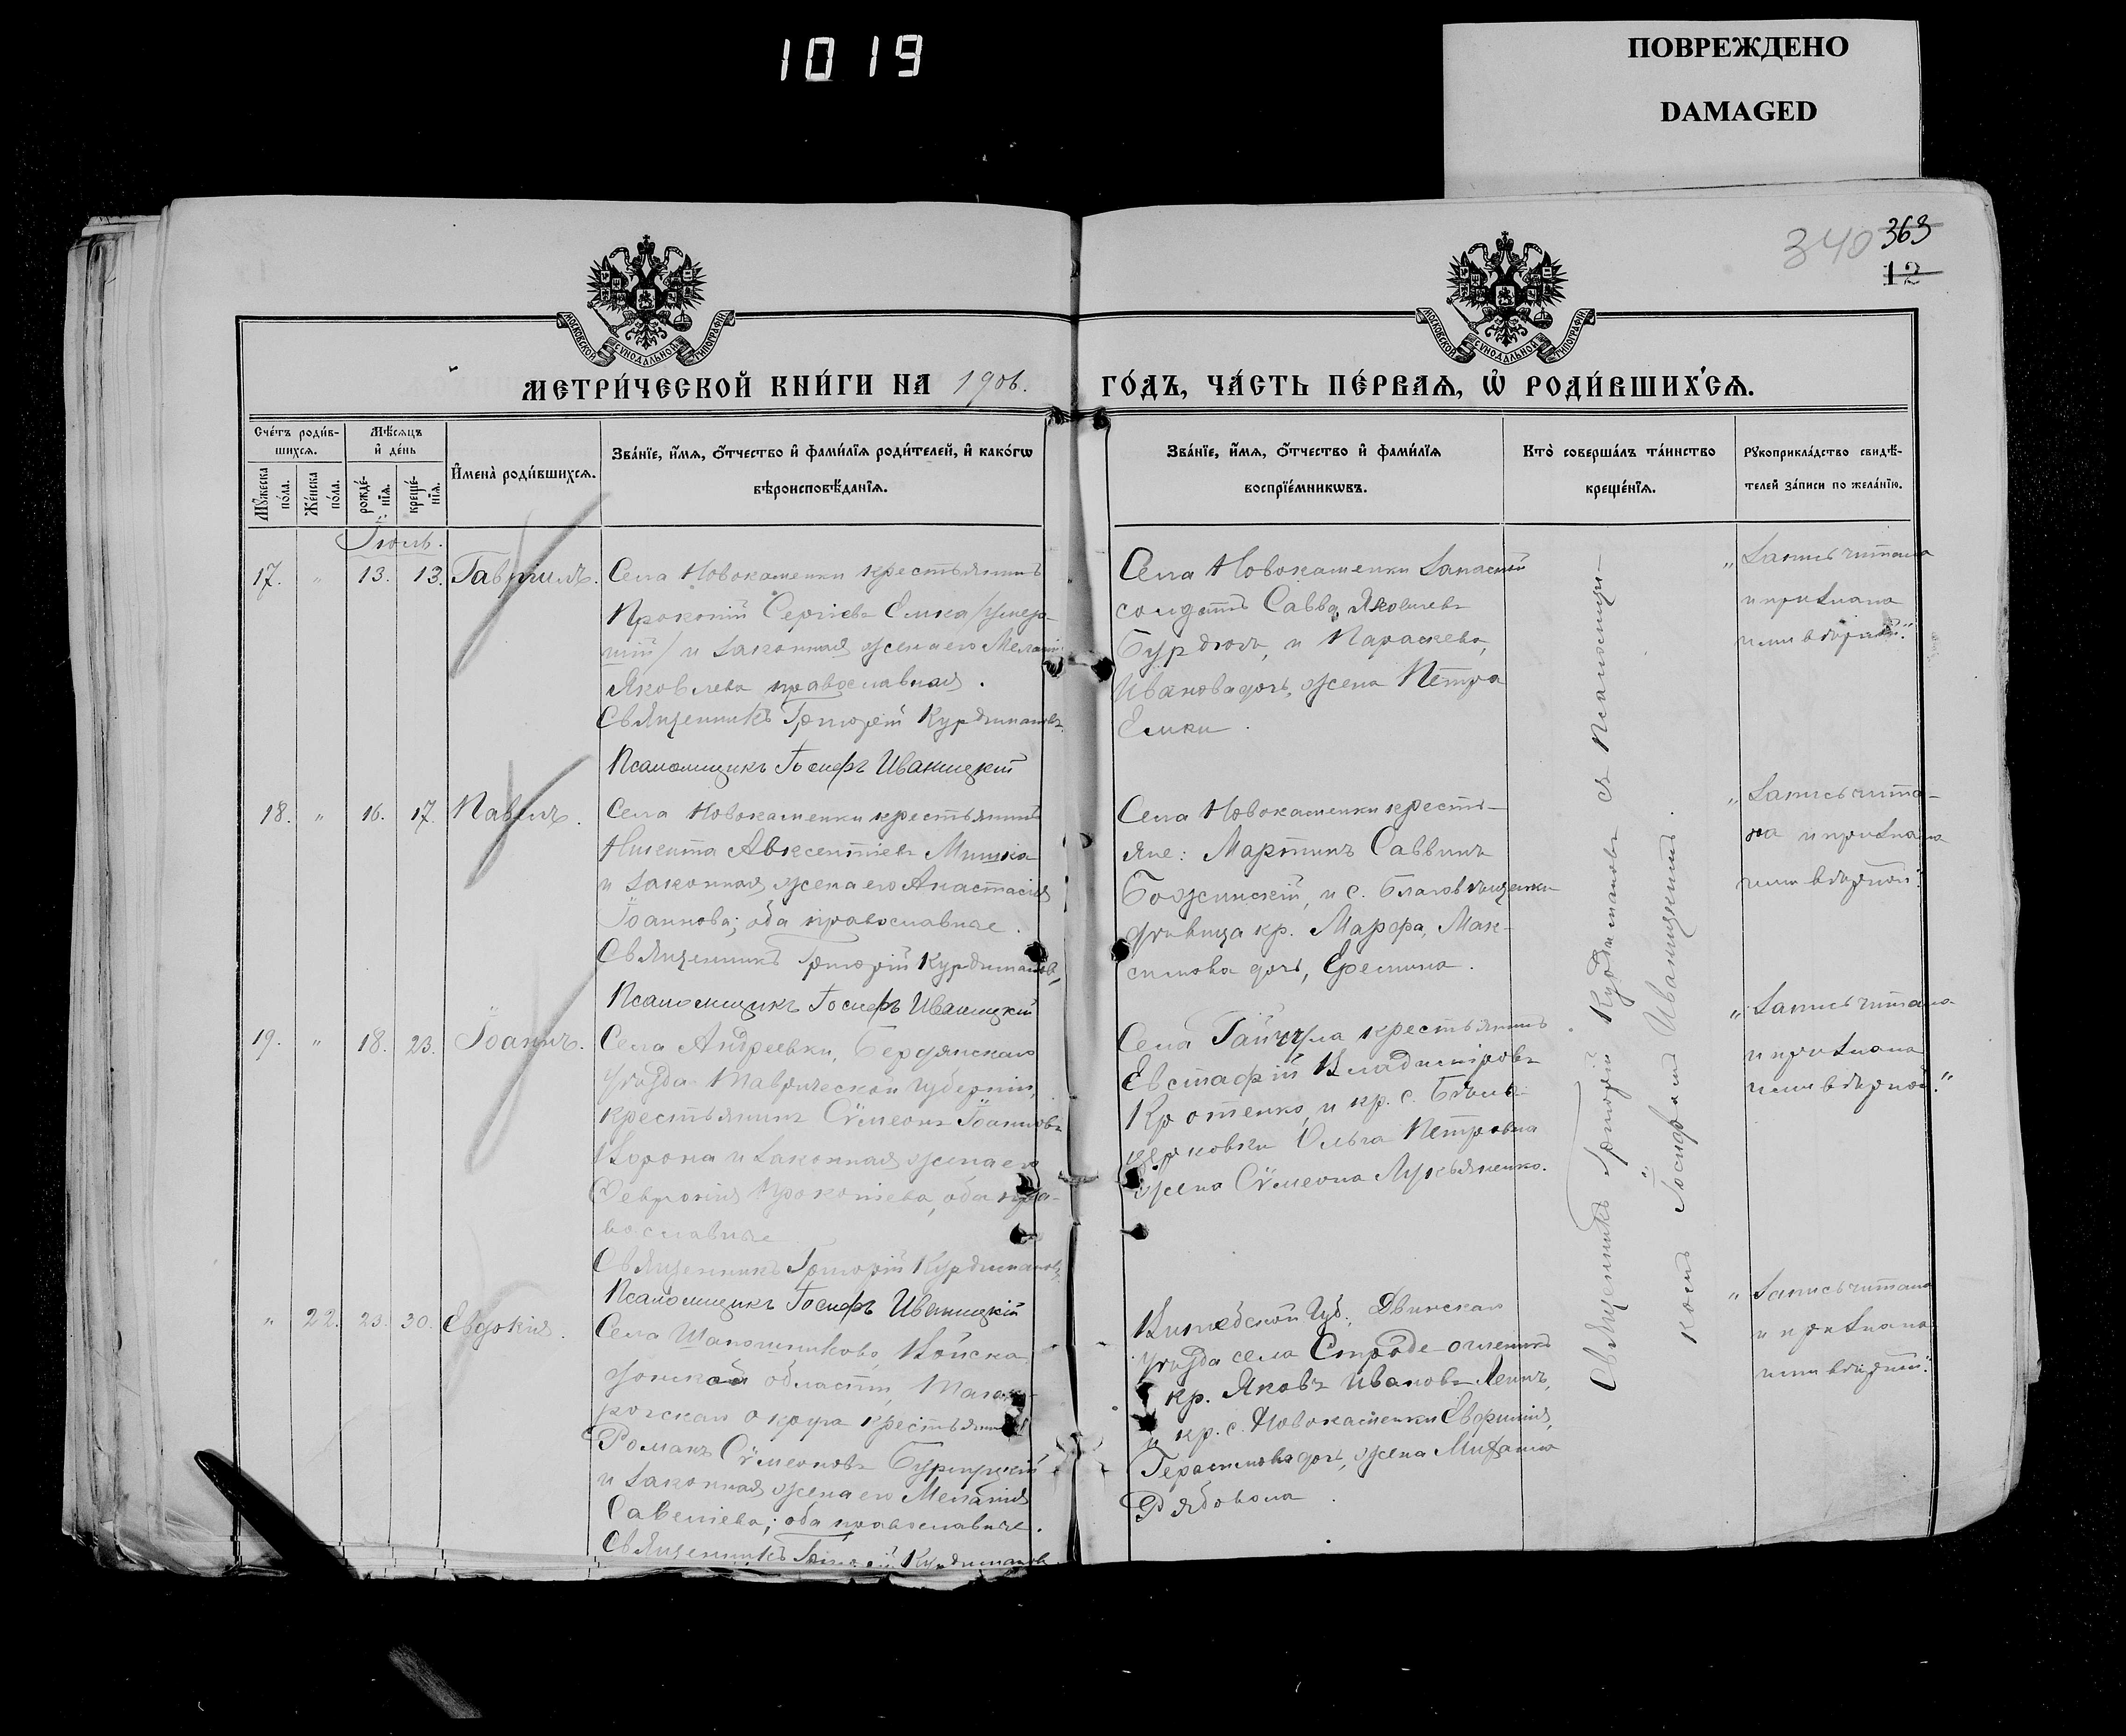 1019
ПОВРЕЖДЕНО
DAMAGED
340 363
12
МОСКОВСКОЙ СѴНОДАЛЬНОЙ ТИПОГРАФІИ
МОСКОВСКОЙ СѴНОДАЛЬНОЙ ТИПОГРАФІИ
МЕТРИ́ЧЕСКОЙ КНИ́ГИ НА 1906.
ГО́ДЪ, ЧА́СТЬ ПЕ́РВАѦ, Ѡ҆ РОДИ́ВШИХ'СѦ.
Сче́тъ роди́в-
шихсѧ.
Мꙋ́жеска
по́ла.
Же́нска
по́ла.
Мѣ́сѧцъ
и҆ де́нь
рожде́-
нїѧ.
креще́-
нїѧ.
И҆мена̀ роди́вшихсѧ.
Зва́нїе, и҆́мѧ, ѻ҆́тчество и҆ фами́лїѧ роди́телей, и҆ како́гѡ
вѣроисповѣ́данїѧ.
Зва́нїе, и҆́мѧ, ѻ҆́тчество и҆ фами́лїѧ
воспрїе́мникѡвъ.
Кто̀ соверша́лъ та́инство
креще́нїѧ.
Рꙋкоприкла́дство свидѣ́-
телей за́писи по жела́нїю.
Іюль.
17. " 13. 13. Гавріилъ.
Села Новокаменки крестьянинъ
Прокопій Сергіевъ Емка /умер-
шій/ и законная жена его Мелані
Яковлева православная.
Священникъ Григорій Курдимановъ.
Псаломщикъ Іосифъ Иваницкій
Села Новокаменки запасной
солдатъ Савва Яковлевъ
Бурдюгъ, и Параскева,
Иванова дочь, жена Петра
Емки.
"Запись читана
и признана
ими вѣрной."
18. " 16. 17. Павелъ.
Села Новокаменки крестьянинъ
Никита Авксентіевъ Мишка
и законная жена его Анастасія
Іоаннова; оба православные.
Священникъ Григорій Курдимановъ,
Псаломщикъ Іосифъ Иваницкій
Села Новокаменки кресть-
яне: Мартинъ Саввинъ
Божинскій, и с. Благовѣщенки
дѣвица кр. Марфа, Мак-
симова дочь, Еремина.
"Запись чита-
на и признана
ими вѣрной".
19. " 18. 23. Іоаннъ.
Села Андреевки, Бердянскаго
уѣзда Таврической губерніи,
крестьянинъ Сѵмеонъ Іоанновъ
и законная жена его
Февронія Прокопіева, оба пра-
вославные
Священникъ Григорій Курдимановъ
Псаломщикъ Іосифъ Иваницкій
Села Гайчула крестьянинъ
Евстафій Владиміровъ
Кротенко, и кр. с. Бѣло-
церковки Ольга Петровна
жена Сѵмеона Лукьяненко.
"Запись читана
и признана
ими вѣрной."
" 22. 23. 30. Евдокія.
Села Шапошниково, Войска
Донской области, Таган-
рогскаго округа крестьянинъ
Романъ Сѵмеоновъ
и законная жена его Меланія
Савеліева; оба православные.
Священникъ Григорій Курдимановъ
Витебской губ., Двинскаго
уѣзда села
кр. Яковъ Ивановъ
и кр. с. Новокаменки Евфимія,
Герасимова дочь, жена Михаила
Рябовола.
"Запись читана
и признана
ими вѣрной".
Священникъ Григорій Курдимановъ съ Псаломщи-
комъ Іосифомъ Иваницкимъ.